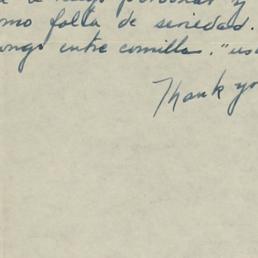 como falta de seriedad.
entre comillas. "us
Thank yo